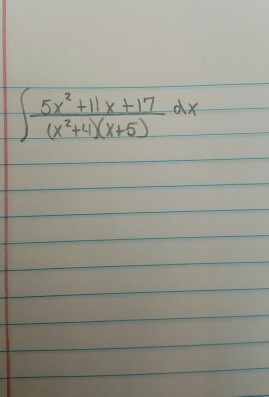 ∫ (5x² + 11x + 17) / ((x²+4)(x+5)) dx